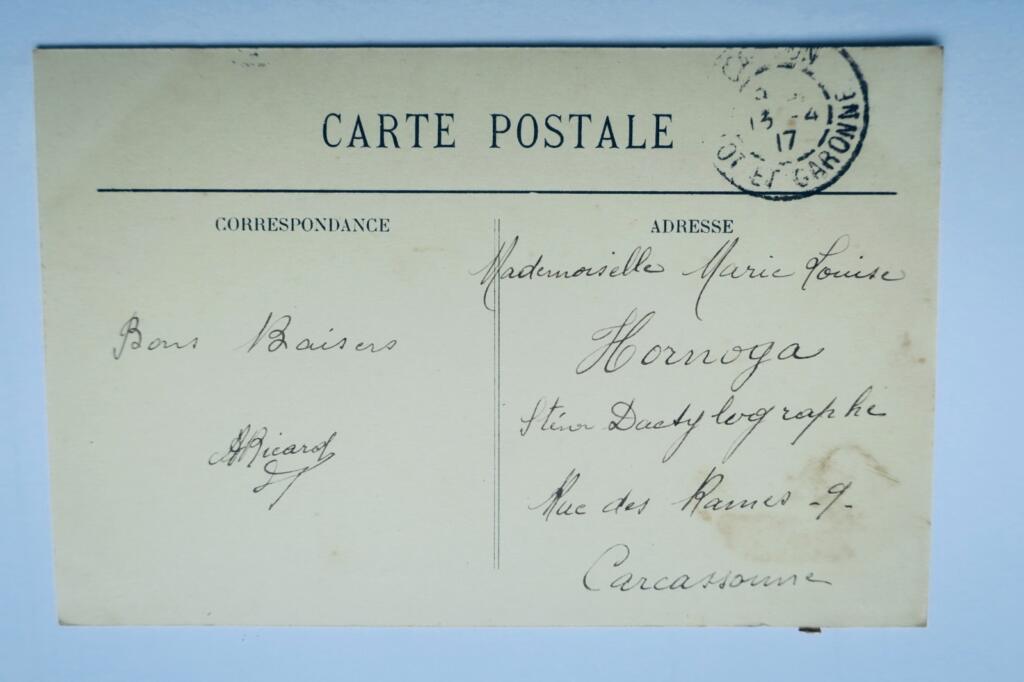 CARTE POSTALE
13 -4
17
LOT ET GARONNE
CORRESPONDANCE
Bons Baisers
ARicard
ADRESSE
Mademoiselle Marie Louise
Hornoga
Sténo Dactylographe
Rue des Rames -9-
Carcassonne